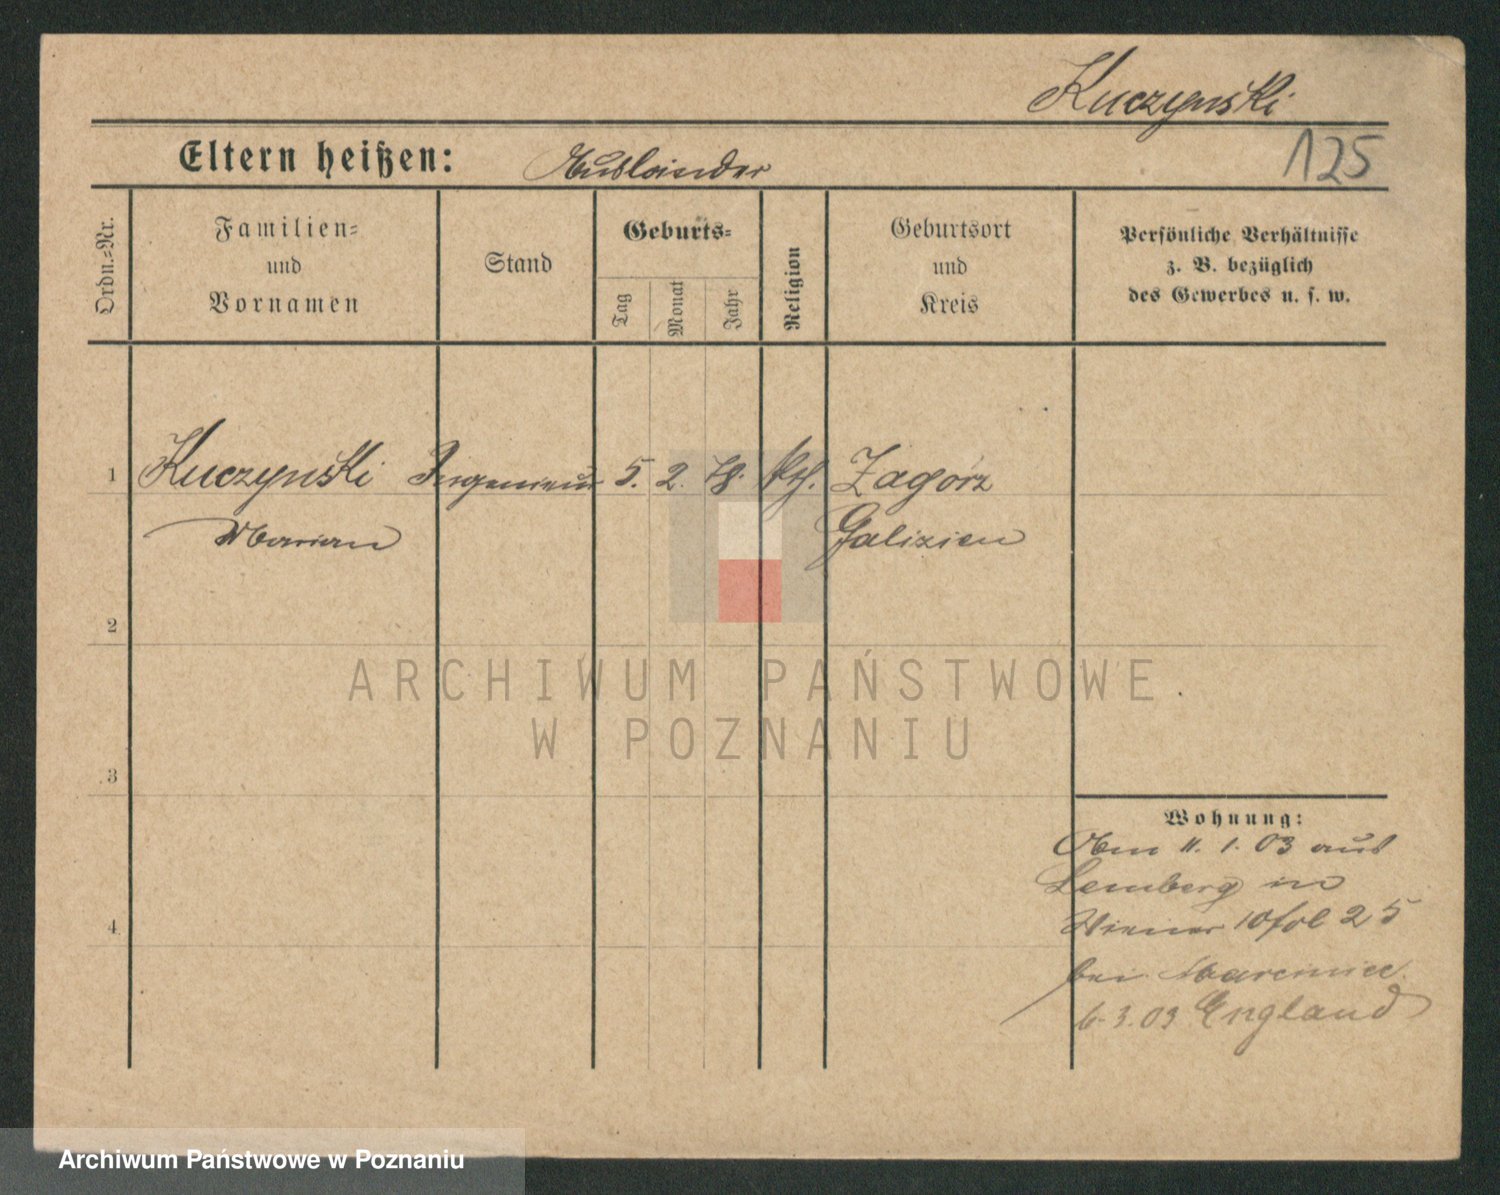 Kuczynski
125
Eltern heißen: Ausländer
Ordn.=Nr.
Familien=
und
Vornamen
Stand
Geburts=
Tag
Monat
Jahr
Religion
Geburtsort
und
Kreis
Persönliche Verhältnisse
z. B. bezüglich
des Gewerbes u. s. w.
1 Kuczynski Ingenieur 5. 2. 78. kth. Zagórz
Marian Galizien
2
ARCHIWUM PAŃSTWOWE
W POZNANIU
3
Wohnung:
Am 11. 1. 03 aus
Lemberg in
Wiener 25
4
bei
6. 3. 03 England
Archiwum Państwowe w Poznaniu